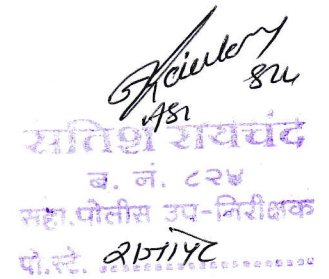 824
ASI
सतिश रायचंद
ब. नं. ८२४
सहा.पोलीस उप-निरीक्षक
पो.स्टे.